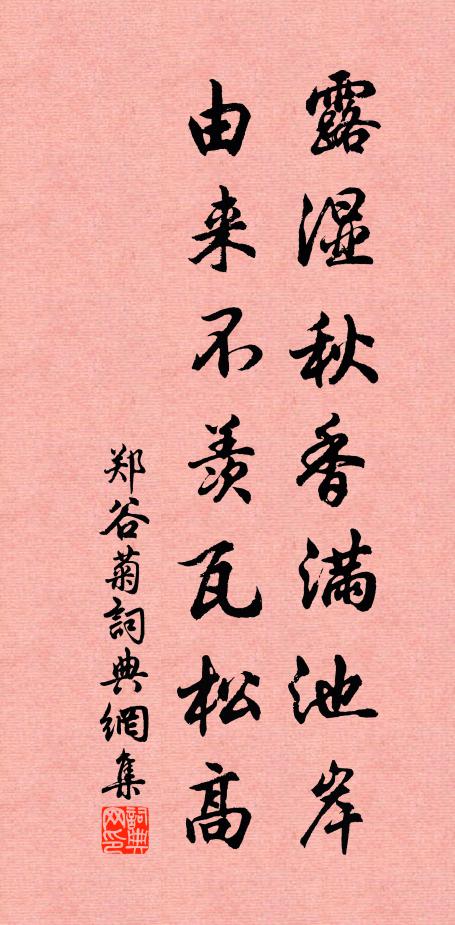 露湿秋香满池岸
由来不羡瓦松高
郑谷菊詞典網集
詞典网印